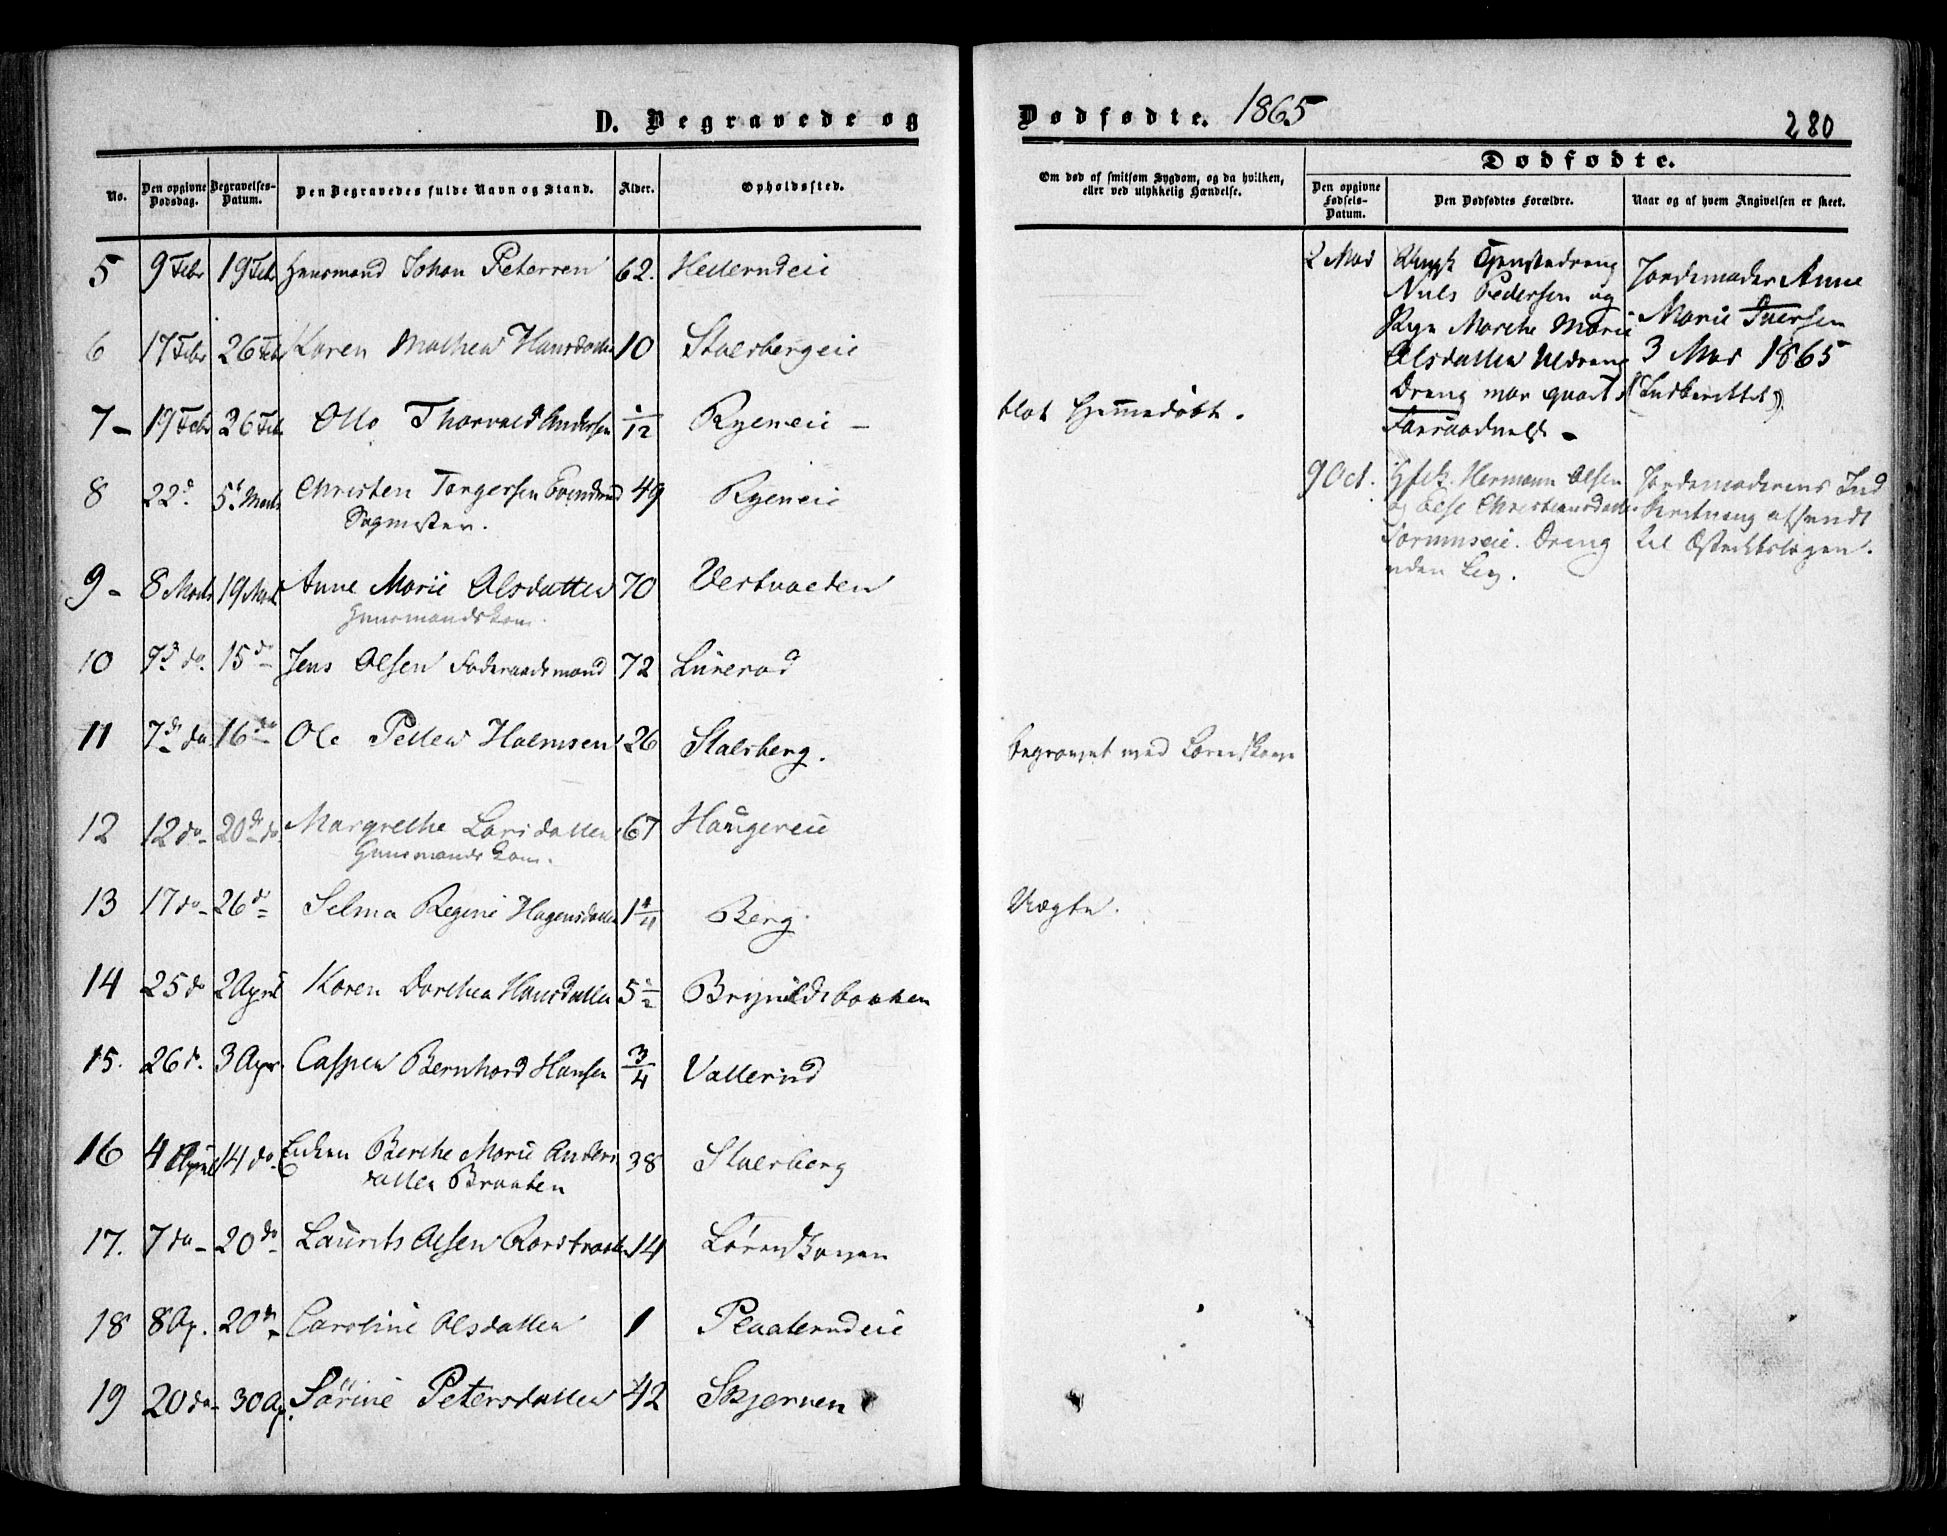 D. Begravede og
No. Den opgivne Dødsdag. Begravelses-Datum. Den Begravedes fulde Navn og Stand. Alder. Opholdssted.
5 9 Febr 19 Feb Huusmand Johan Petersen 62. Hellerudeie
6 17 Febr 26 Feb Karen Mathea Hansdatter 10 Stalsbergeie
7 - 19 Febr 26 Feb Otto Thorvald Andersen 1/12 Ryeneie -
8 22d 5t Marts Christen Torgersen 49 Ryeneie
Sagmester.
9 - 8 Marts 19 Mart Anne Marie Olsdatter 70 Vestvolden
Huusmandskone.
10 9d do. 15 do Jens Olsen Føderaadsmand 72 Lürerød
11 7de do 16 do Ole Petter Holmsen 26 Stalsberg.
12 12 do 20de do Margrethe Larsdatter 67 Haugereie
Huusmands Kone.
13 17 do 26 do Selma Regine Hagensdatter 1 1/4 Berg.
14 25 do 2 April Karen Dorthea Hansdatter 5 1/2 Brynildsbakken
15. 26 d. 3 Apr. Casper Bernhard Hansen 3/4 Vallerud
16 4 April 14 do Enken Berthe Marie Anders 38 Stalsberg
datter Braaten
17. 7 do - 20 do Laurits Olsen 14 Lørenskogen
18 8 Ap. 20 do Caroline Olsdatter 1 Plaaterudeie
19 20 do - 30 Ap. Sørine Petersdatter 42 Skjernen
Dødfødte. 1865
280
Om død af smitsom Sygdom, og da hvilken, eller ved ulykkelig Hændelse.
Dødfødte.
Den opgivne Fødsels-Datum. Den Dødfødtes Forældre. Naar og af hvem Angivelsen er skeet.
2 Mar Ungk Tjenestedreng Jordemoder Anne
Nils Pedersen og Marie Iversen
Pige Marthe Marie 3 Mar 1865
Olsdatter
Dreng (Indberettet).
blot hjemmedøbt.
9 Oct. Hermann Olsen Jordemoderens Ind
og Else Christiansdatter beretning afsendt
Sørumseie. Dreng til
uden Liv.
begravet ved Lørenskoug